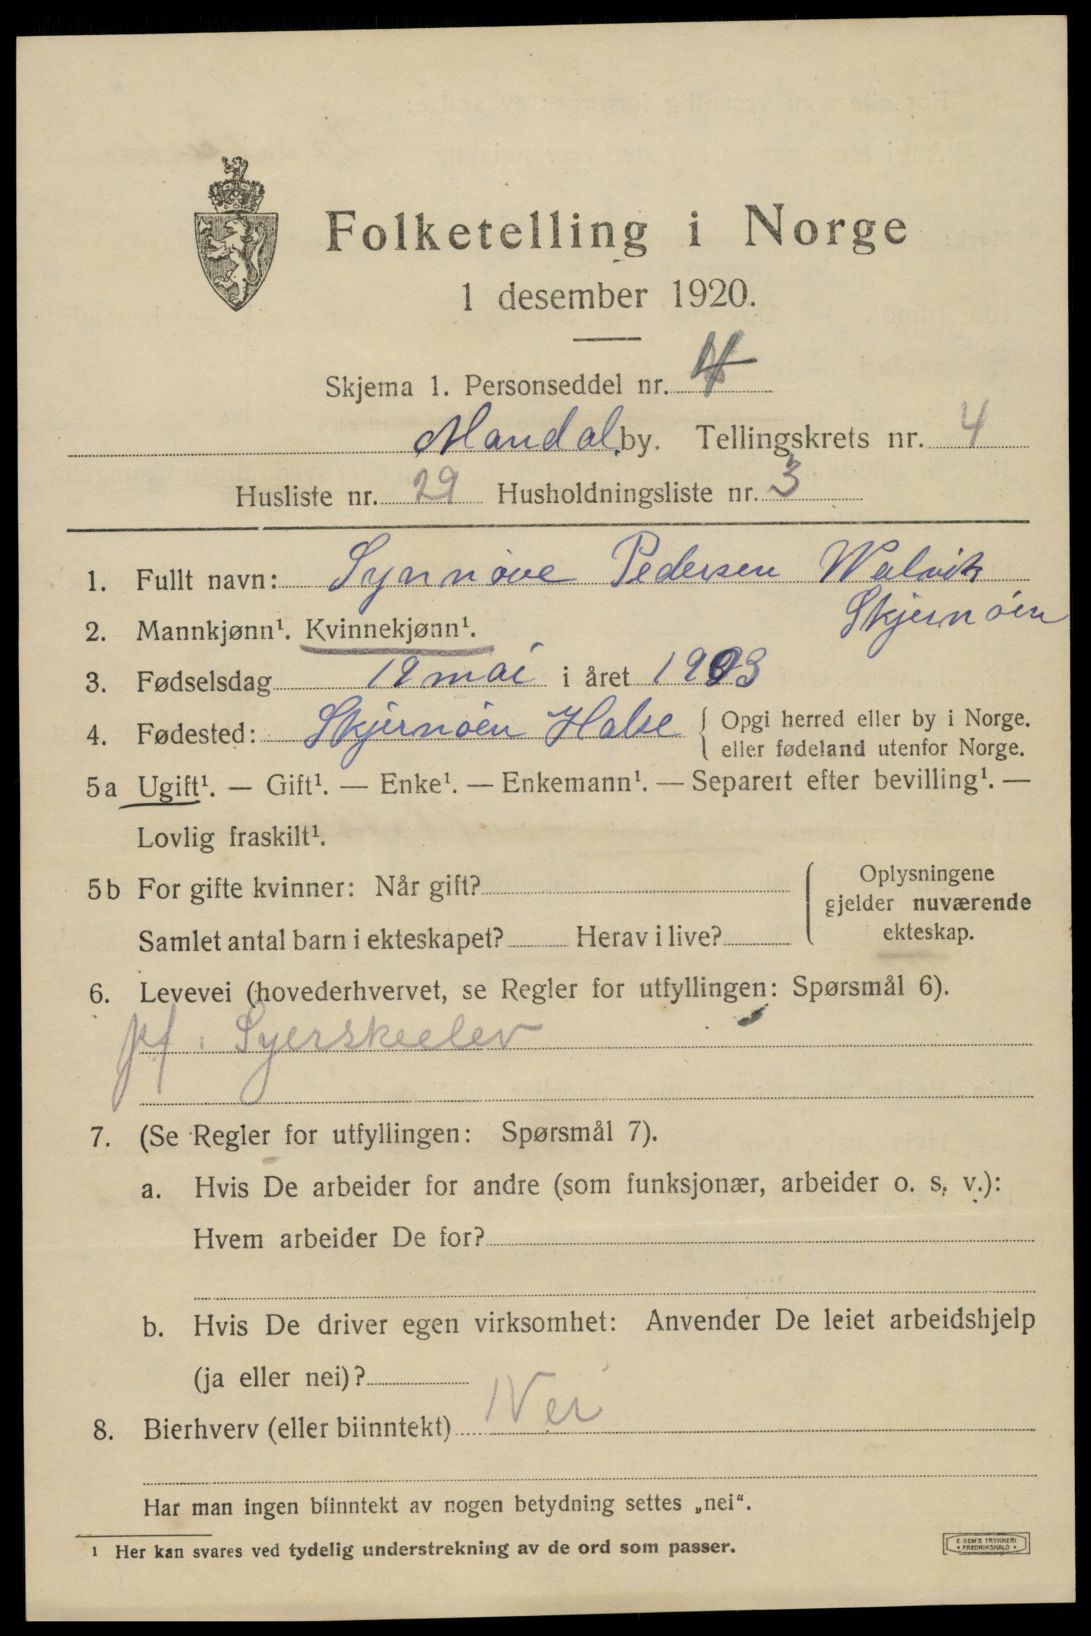 Folketelling i Norge
1 desember 1920.
Skjema 1. Personseddel nr. 4
Mandal by. Tellingskrets nr. 4
Husliste nr. 29 Husholdningsliste nr. 3
1. Fullt navn: Synnøve Pedersen Walvik
Skjernöen
2. Mannkjønn¹. Kvinnekjønn¹.
3. Fødselsdag 19 mai i året 1903
4. Fødested: Skjernöen Halse { Opgi herred eller by i Norge.
eller fødeland utenfor Norge.
5a Ugift¹. — Gift¹. — Enke¹. — Enkemann¹. — Separert efter bevilling¹. —
Lovlig fraskilt¹.
5b For gifte kvinner: Når gift?
Samlet antal barn i ekteskapet? Herav i live?
Oplysningene
gjelder nuværende
ekteskap.
6. Levevei (hovederhvervet, se Regler for utfyllingen: Spørsmål 6).
pf. Syerskeelev
7. (Se Regler for utfyllingen: Spørsmål 7).
a. Hvis De arbeider for andre (som funksjonær, arbeider o. s. v.):
Hvem arbeider De for?
b. Hvis De driver egen virksomhet: Anvender De leiet arbeidshjelp
(ja eller nei)?
8. Bierhverv (eller biinntekt) Nei
Har man ingen biinntekt av nogen betydning settes „nei“.
¹ Her kan svares ved tydelig understrekning av de ord som passer.
E. SEM'S TRYKKERI
• FREDRIKSHALD •